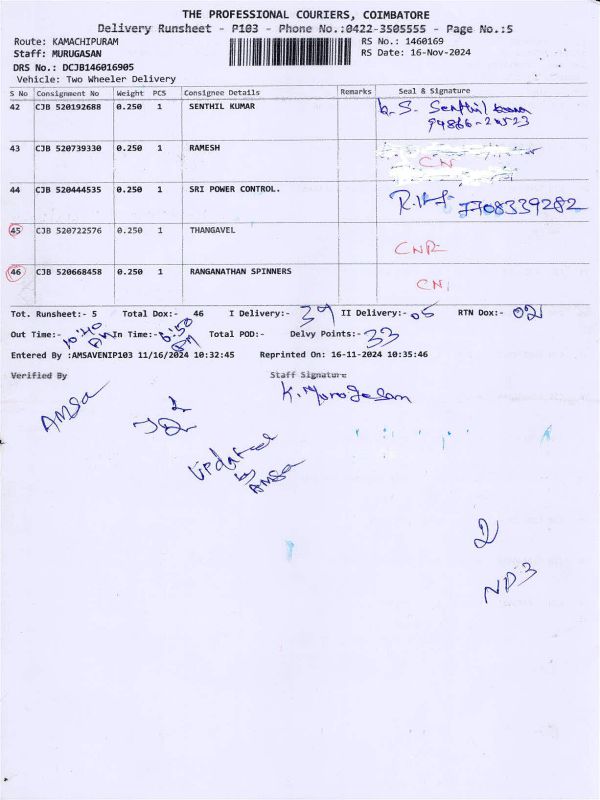 THE PROFESSIONAL COURIERS, COIMBATORE
Delivery Runsheet - P103 - Phone No.:0422-3505555 - Page No.:5
Route: KAMACHIPURAM RS No.: 1460169
Staff: MURUGASAN RS Date: 16-Nov-2024
DRS No.: DCJB146016905
Vehicle: Two Wheeler Delivery
S No Consignment No Weight PCS Consignee Details Remarks Seal & Signature
42 CJB 520192688 0.250 1 SENTHIL KUMAR K.S. Senthil
43 CJB 520739330 0.250 1 RAMESH CN
44 CJB 520444535 0.250 1 SRI POWER CONTROL. 7708339282
45 CJB 520722576 0.250 1 THANGAVEL CNR
46 CJB 520668458 0.250 1 RANGANATHAN SPINNERS CN
Tot. Runsheet:- 5 Total Dox:- 46 I Delivery:- 39 II Delivery:- 05 RTN Dox:- 02
Out Time:- 10:40 AM In Time:- 6:50 PM Total POD:- Delvy Points:- 33
Entered By :AMSAVENIP103 11/16/2024 10:32:45 Reprinted On: 16-11-2024 10:35:46
Verified By Staff Signature
K. Murugesan
AMSa
Updated
by
AMSa
2
ND-3